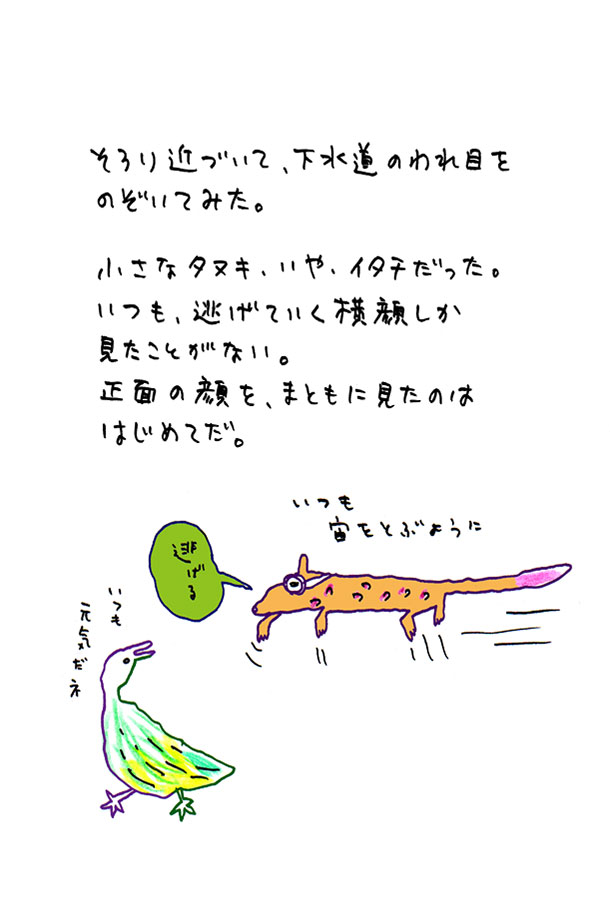 そろり近づいて、下水道のわれ目を
のぞいてみた。
小さなタヌキ、いや、イタチだった。
いつも、逃げていく横顔しか
見たことがない。
正面の顔を、まともに見たのは
はじめてだ。
いつも
宙をとぶように
逃げる
いつも
元気だネ